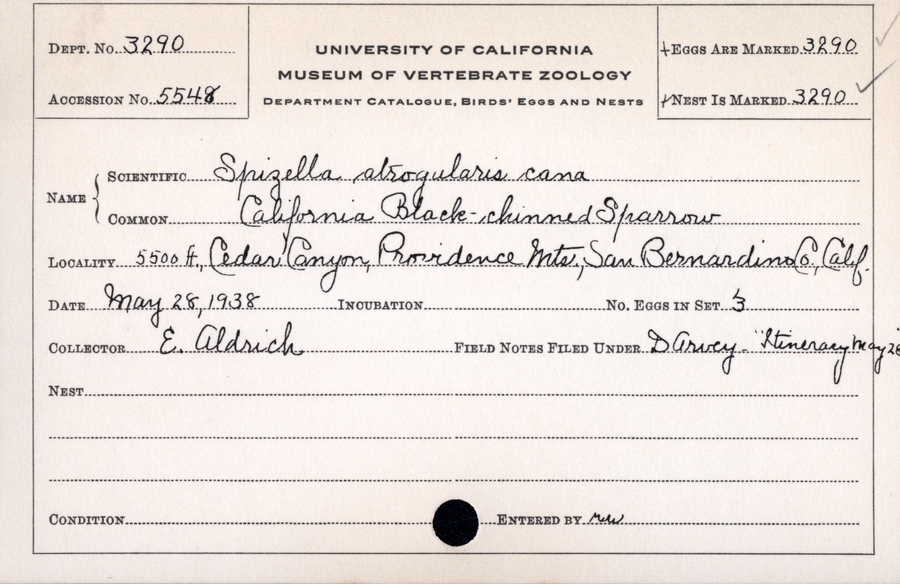 Dept. No. 3290
Accession No. 5548
UNIVERSITY OF CALIFORNIA
MUSEUM OF VERTEBRATE ZOOLOGY
Department Catalogue, Birds' Eggs and Nests
+Eggs Are Marked 3290
+Nest Is Marked 3290
Name { Scientific Spizella atrogularis cana
Common California Black-chinned Sparrow
Locality 5500 ft., Cedar Canyon, Providence Mts., San Bernardino Co., Calif.
Date May 28, 1938 Incubation No. Eggs in Set 3
Collector E. Aldrich Field Notes Filed Under D Arvey - "Itinerary May 28"
Nest
Condition Entered by